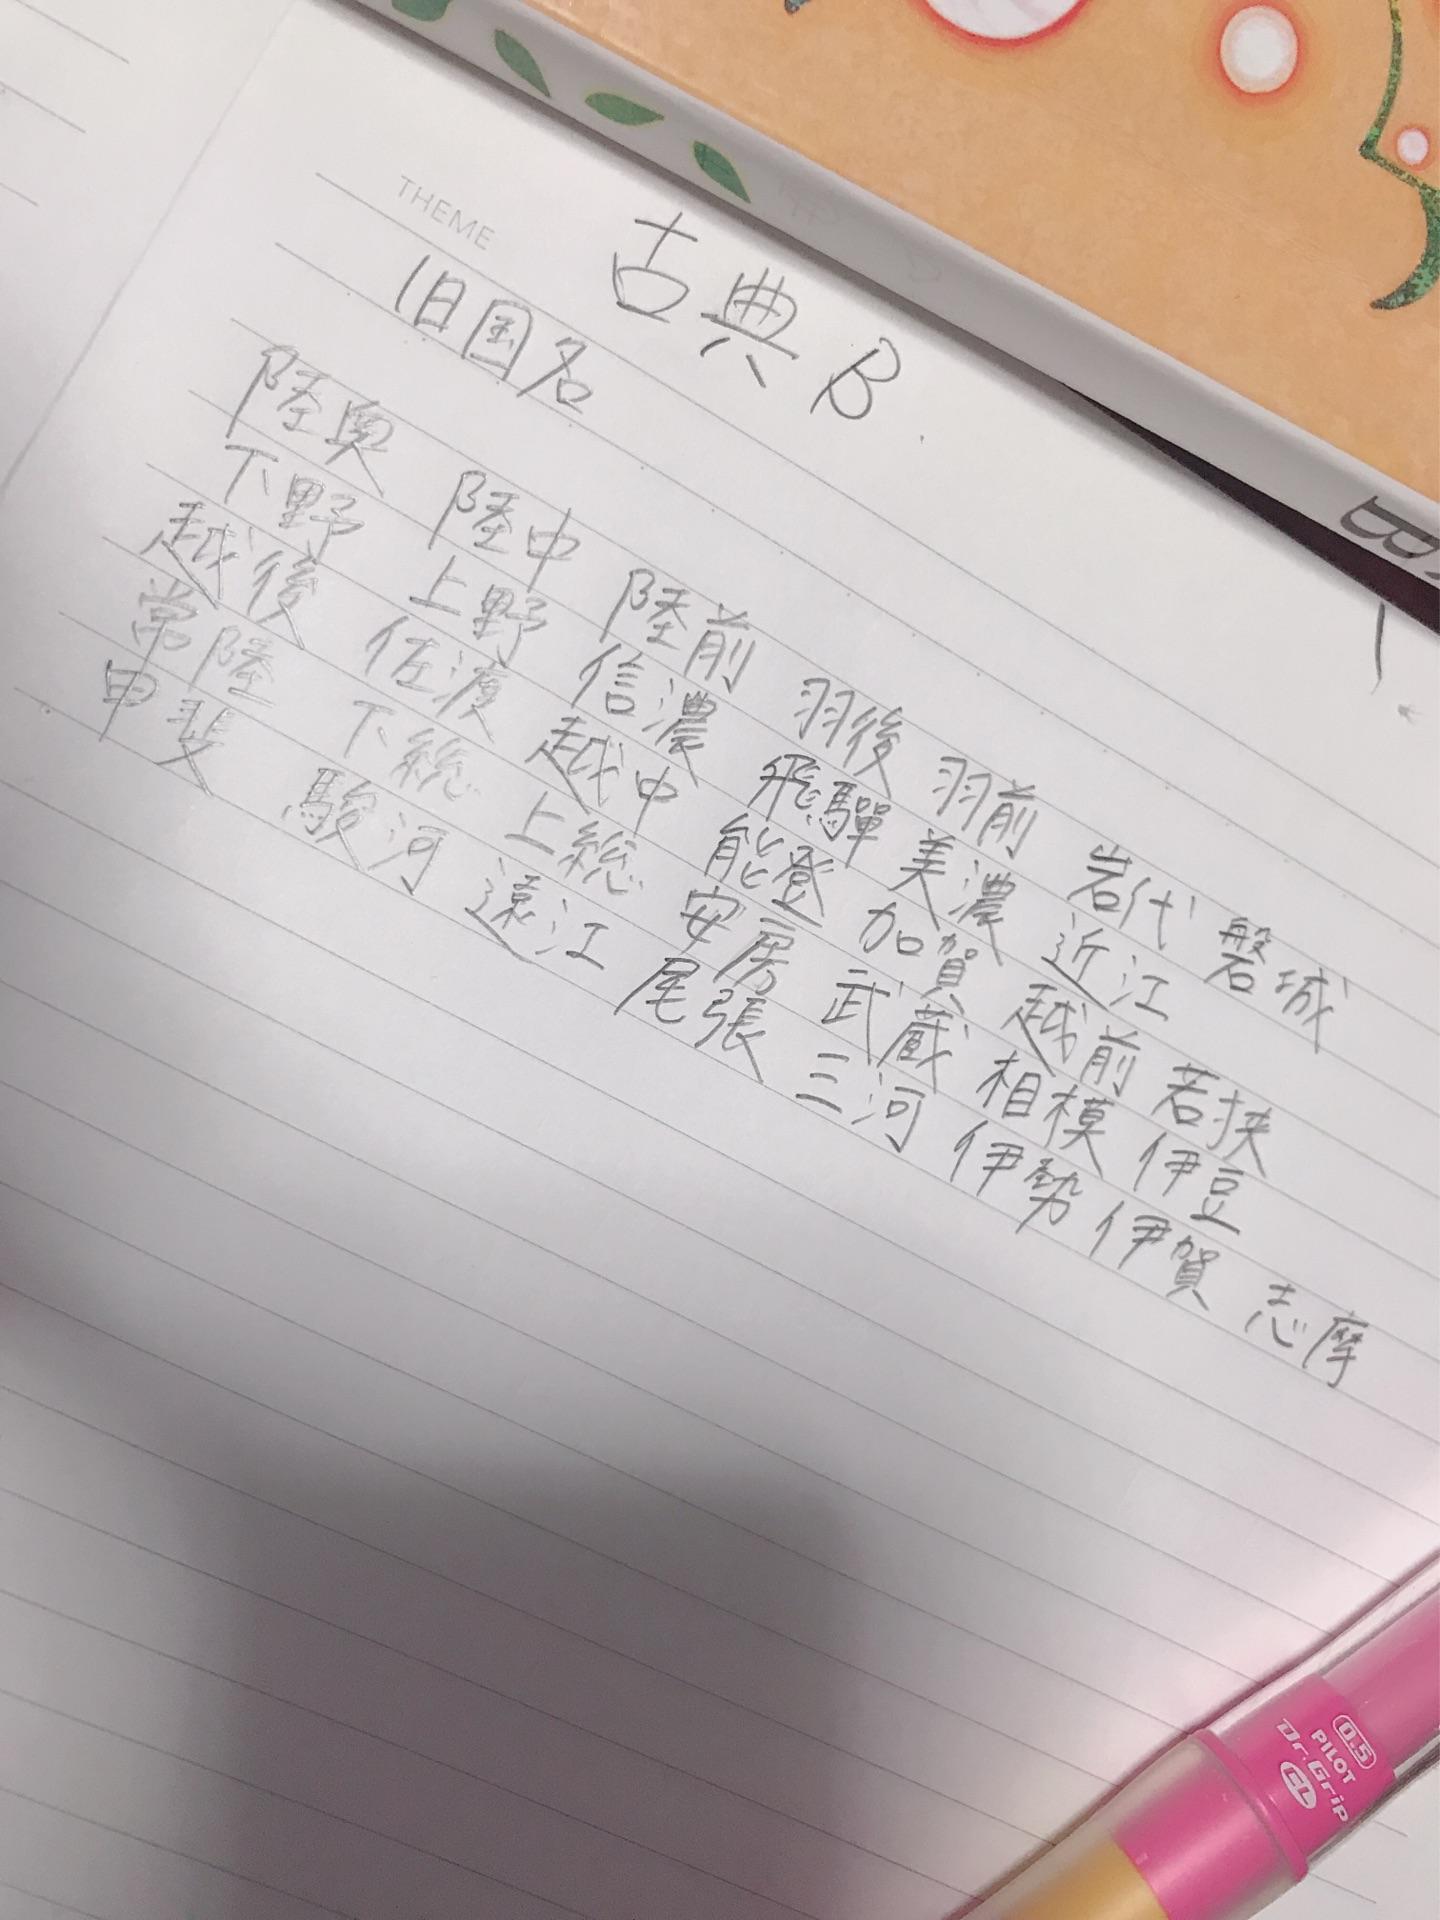 THEME
古典B
旧国名
陸奥 陸中 陸前 羽後 羽前 岩代 磐城
下野 上野 信濃 飛騨 美濃 近江
越後 佐渡 越中 能登 加賀 越前 若挟
常陸 下総 上総 安房 武蔵 相模 伊豆
甲斐 駿河 遠江 尾張 三河 伊勢 伊賀 志摩
0.5
PILOT
Dr.Grip
CL